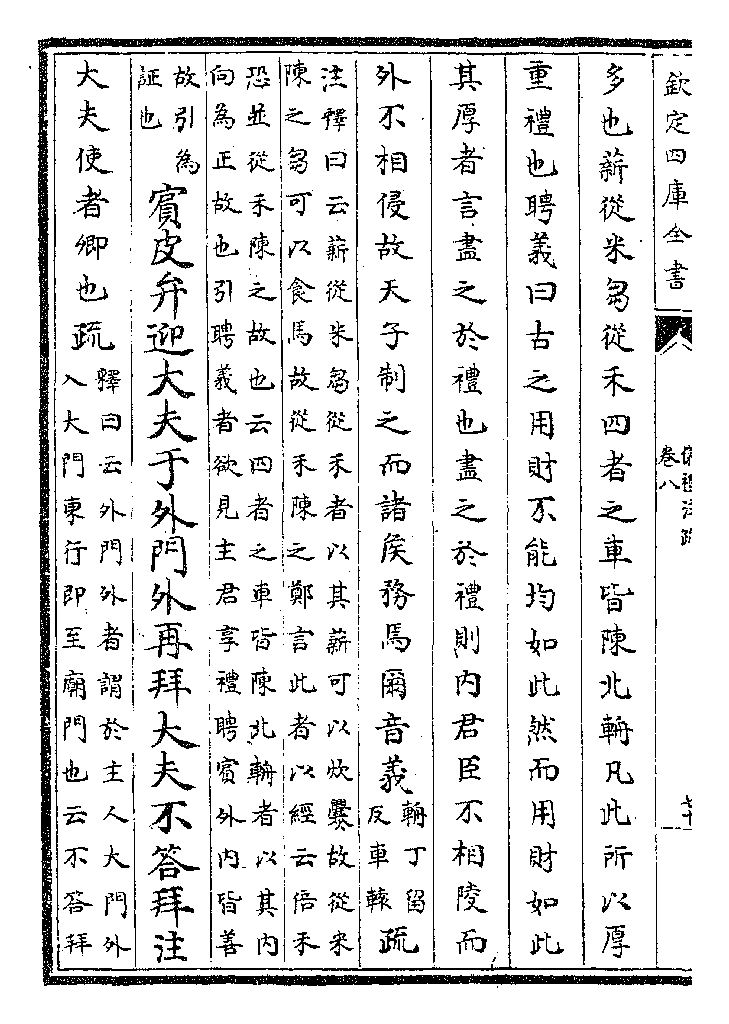 欽定四庫全書
儀禮注疏
卷八
多也薪從米芻從禾四者之車皆陳北輈凡此所以厚
重禮也聘義曰古之用財不能均如此然而用財如此
其厚者言盡之於禮也盡之於禮則内君臣不相陵而
外不相侵故天子制之而諸侯務焉爾音義輈丁留反車轅疏
注釋曰云薪從米芻從禾者以其薪可以炊爨故從米
陳之芻可以食馬故從禾陳之鄭言此者以經云倍禾
恐並從禾陳之故也云四者之車皆陳北輈者以其内
向為正故也引聘義者欲見主君享禮聘賓外内皆善
故引為証也賓皮弁迎大夫于外門外再拜大夫不答拜注
大夫使者卿也疏釋曰云外門外者謂於主人大門外
入大門東行即至廟門也云不答拜